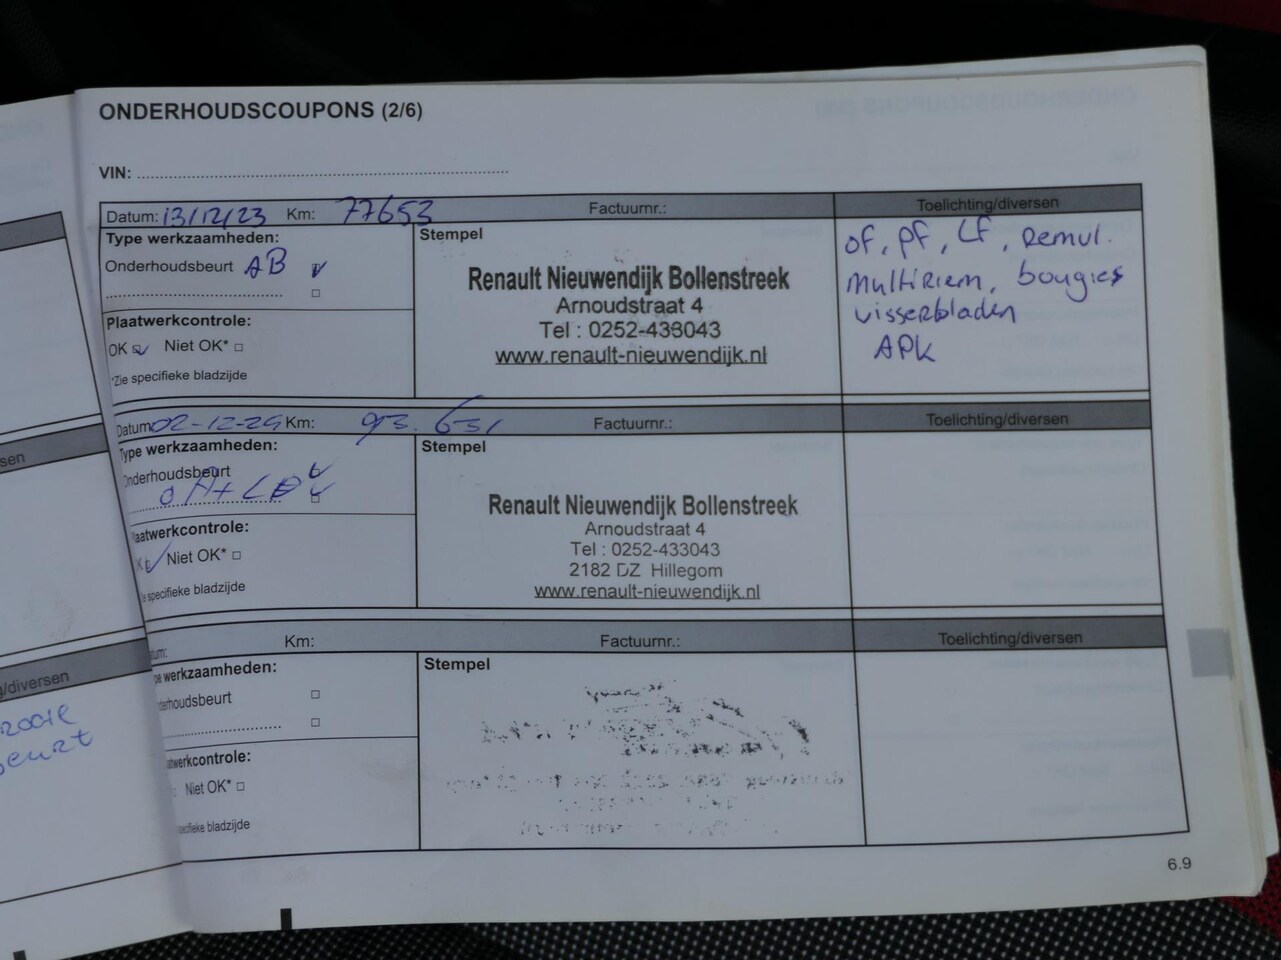 ONDERHOUDSCOUPONS (2/6)
VIN:
Datum: 13/12/23 Km: 77653 Factuurnr.: Toelichting/diversen
Type werkzaamheden:
Onderhoudsbeurt AB
Plaatwerkcontrole:
OK Niet OK*
*Zie specifieke bladzijde
Stempel
Renault Nieuwendijk Bollenstreek
Arnoudstraat 4
Tel : 0252-433043
www.renault-nieuwendijk.nl
of, pf, Lf, Remul.
multiriem, bougies
visserbladen
APK
Datum Km: Factuurnr.: Toelichting/diversen
Type werkzaamheden:
Onderhoudsbeurt
laatwerkcontrole:
Niet OK*
specifieke bladzijde
Stempel
Renault Nieuwendijk Bollenstreek
Arnoudstraat 4
Tel : 0252-433043
2182 DZ Hillegom
www.renault-nieuwendijk.nl
tum: Km: Factuurnr.: Toelichting/diversen
pe werkzaamheden:
derhoudsbeurt
atwerkcontrole:
Niet OK*
specifieke bladzijde
Stempel
sen
g/diversen
6.9